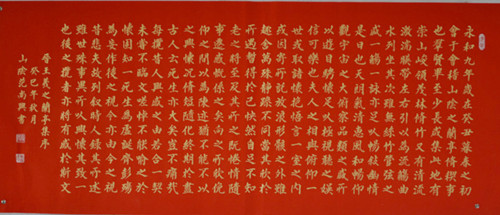 永和九年歲在癸丑暮春之初
會于會稽山陰之蘭亭脩禊事
也群賢畢至少長咸集此地有
崇山峻領茂林脩竹又有清流
激湍暎帶左右引以為流觴曲
水列坐其次雖無絲竹管弦之
盛一觴一詠亦足以暢敘幽情
是日也天朗氣清惠風和暢仰
觀宇宙之大俯察品類之盛所
以遊目騁懷足以極視聽之娛
信可樂也夫人之相與俯仰一
世或取諸懷抱悟言一室之內
或因寄所託放浪形骸之外雖
趣舍萬殊靜躁不同當其欣於
所遇暫得於己快然自足不知
老之將至及其所之既惓情隨
事遷感慨係之矣向之所欣俛
仰之間以為陳迹猶不能不以
之興懷況脩短隨化終期於盡
古人云死生亦大矣豈不痛哉
每攬昔人興感之由若合一契
未嘗不臨文嗟悼不能喻之於
懷固知一死生為虛誕齊彭殤
為妄作後之視今亦由今之視
昔悲夫故列敘時人錄其所述
雖世殊事異所以興懷其致一
也後之攬者亦將有感於斯文
晉王羲之蘭亭集序
癸巳年秋月
山陰范南興書